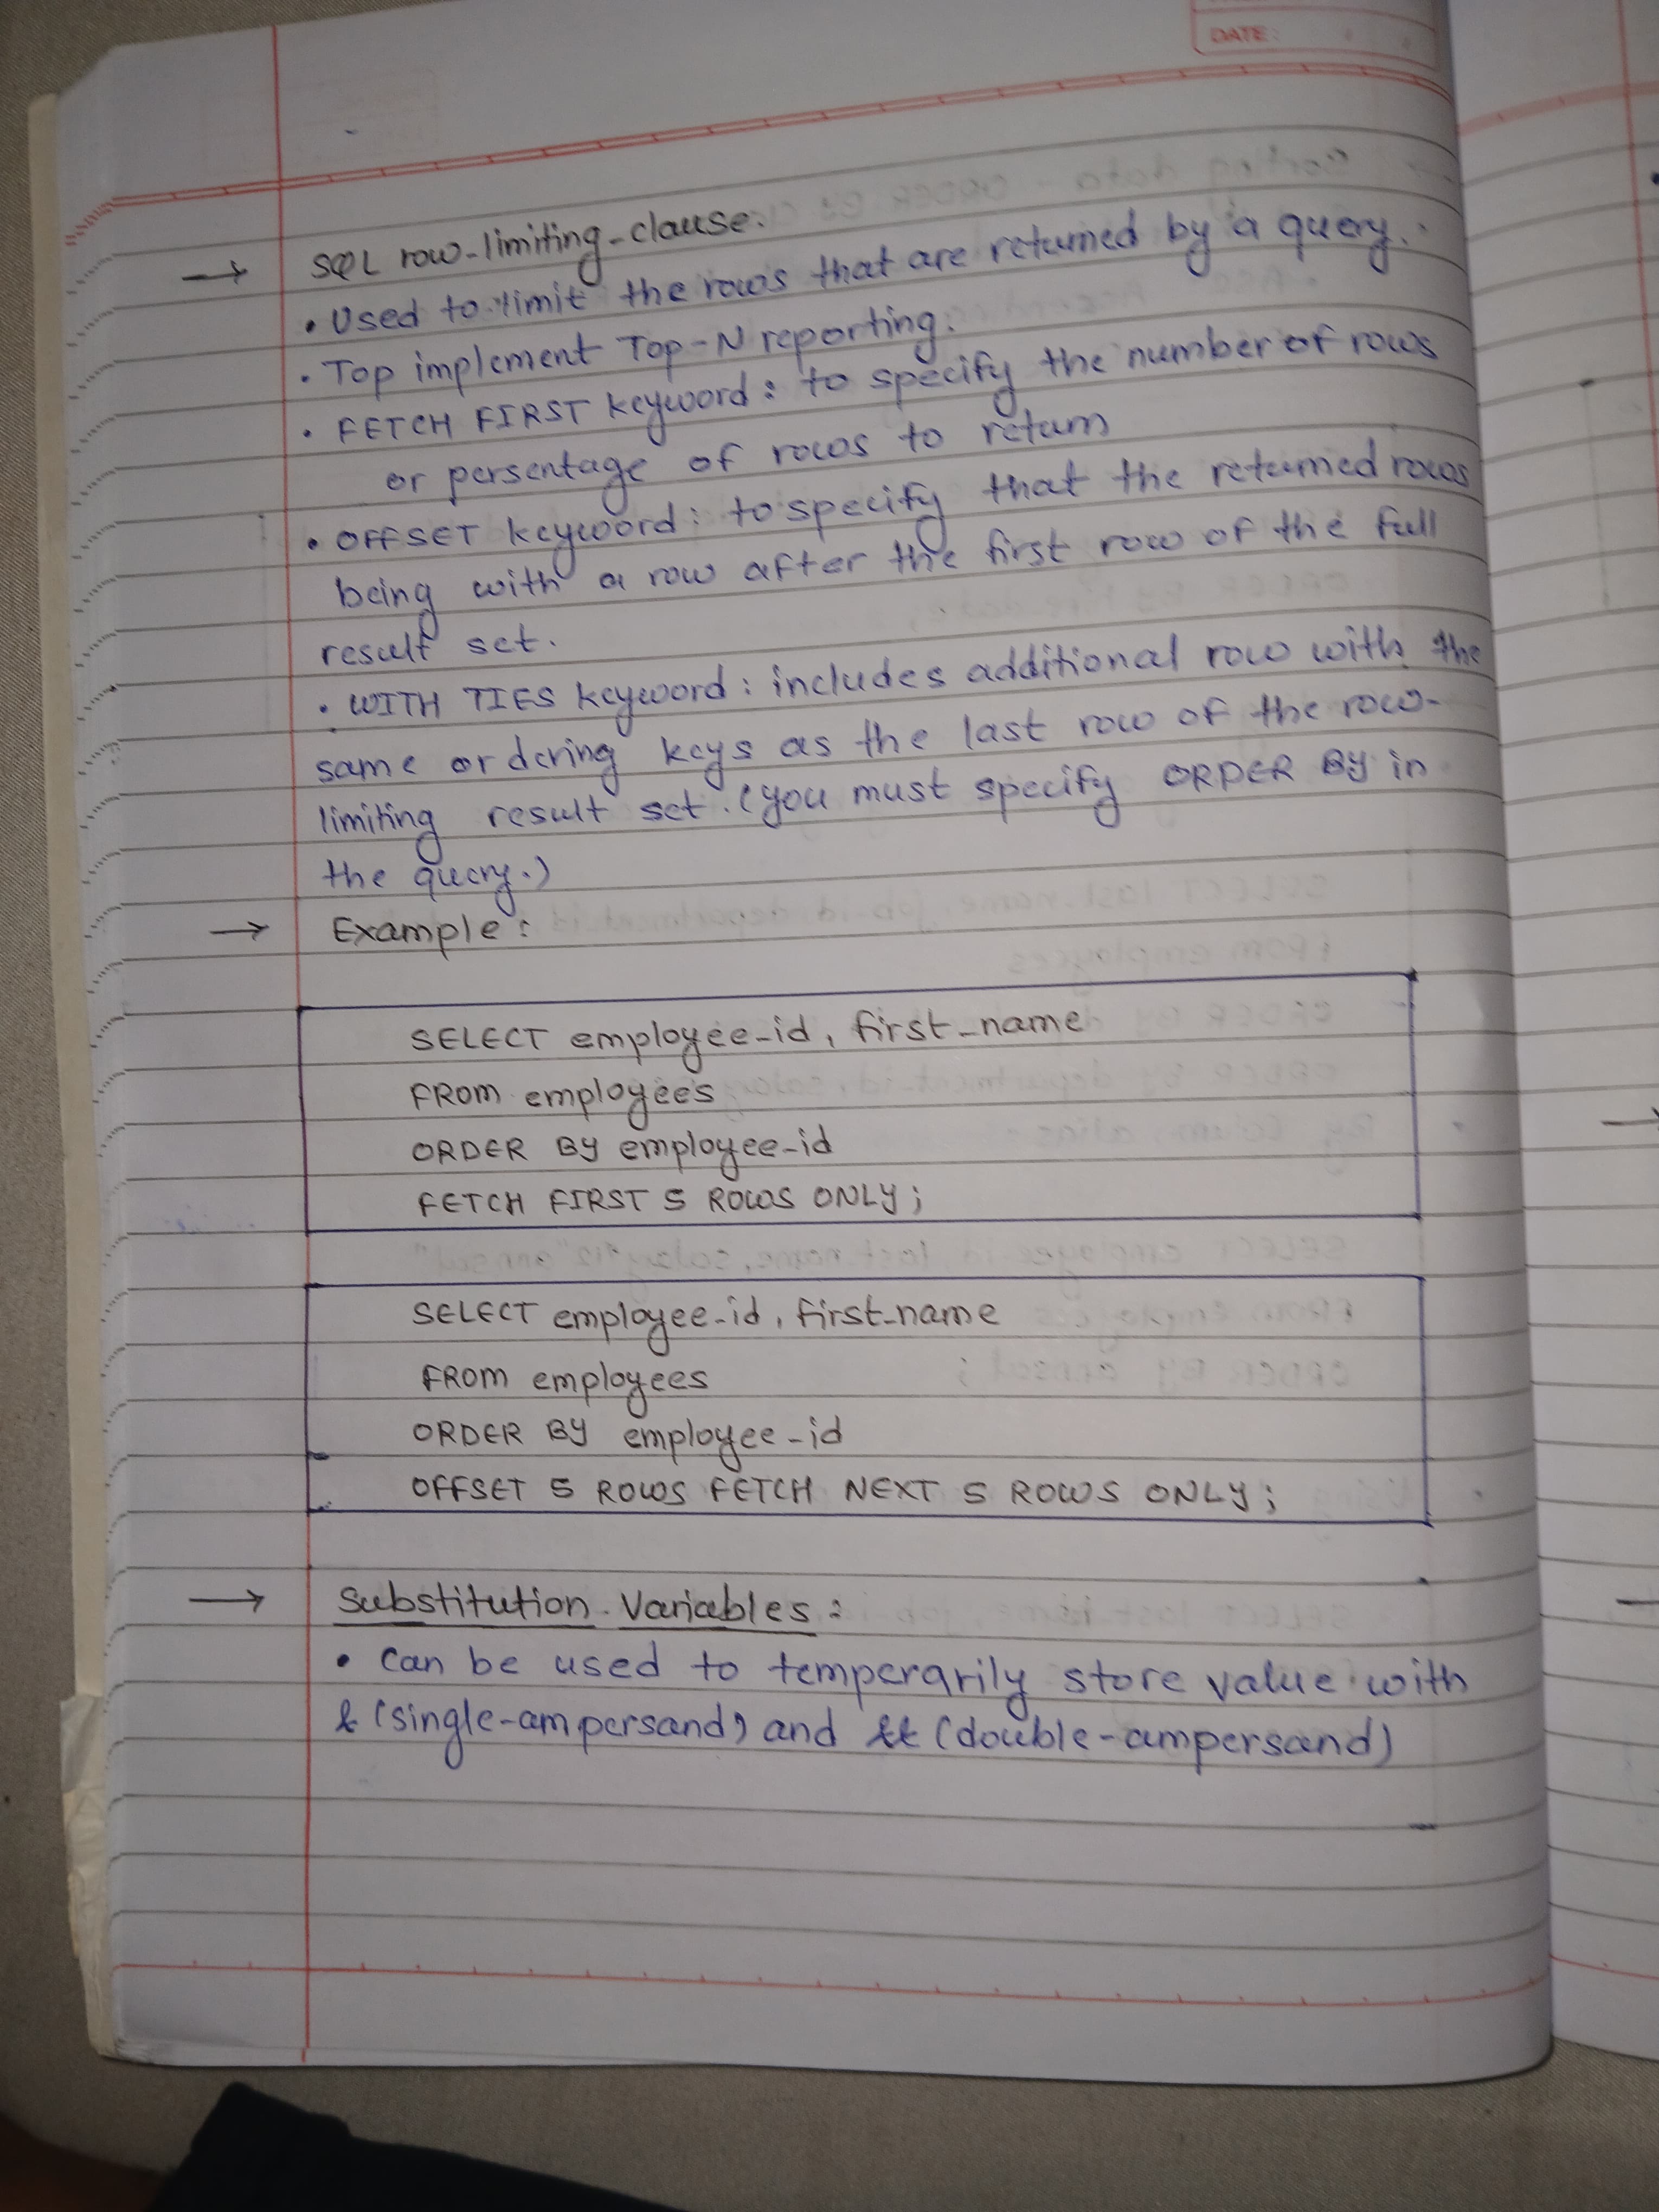 DATE:
→ SQL row-limiting-clause.
• Used to limit the rows that are returned by a query.
• Top implement Top-N reporting.
• FETCH FIRST keyword: to specify the number of rows
or persentage of rows to return
• OFFSET keyword: to specify that the returned rows
being with a row after the first row of the full
result set.
• WITH TIES keyword: includes additional row with the
same ordering keys as the last row of the row-
limiting result set. (you must specify ORDER BY in
the query.)
→ Example:
SELECT employee_id, first_name
FROM employees
ORDER BY employee_id
FETCH FIRST 5 ROWS ONLY;
SELECT employee_id, first_name
FROM employees
ORDER BY employee_id
OFFSET 5 ROWS FETCH NEXT 5 ROWS ONLY;
→ Substitution Variables:
• Can be used to temperarily store value with
& (single-ampersand) and && (double-ampersand)